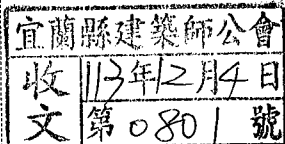 宜蘭縣建築師公會
收文
113年12月4日
第0801號